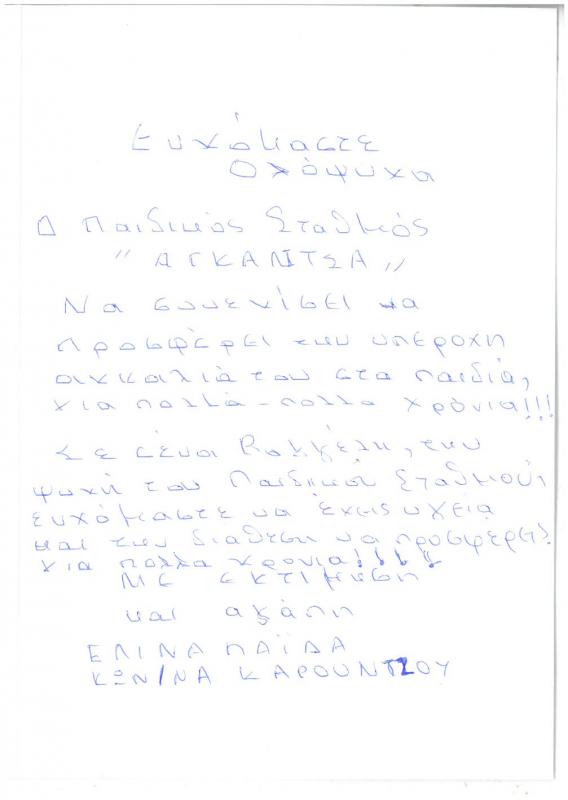 Ευχόμαστε
Ολόψυχα
Ο Παιδικός Σταθμός
"ΑΓΚΑΛΙΤΣΑ"
Να συνεχίσει να
προσφέρει την υπέροχη
αγκαλιά του στα παιδιά,
για πολλά-πολλα χρόνια!!!
Σε σένα Βαγγέλη, την
ψυχή του Παιδικού Σταθμού,
ευχόμαστε να έχεις υγεία
και την διαθεση να προσφερεις
για πολλα χρονια!!!!
Με εκτίμηση
και αγάπη
ΕΛΙΝΑ ΠΑΪΔΑ
ΚΩΝ/ΝΑ ΚΑΡΟΥΝΤΖΟΥ